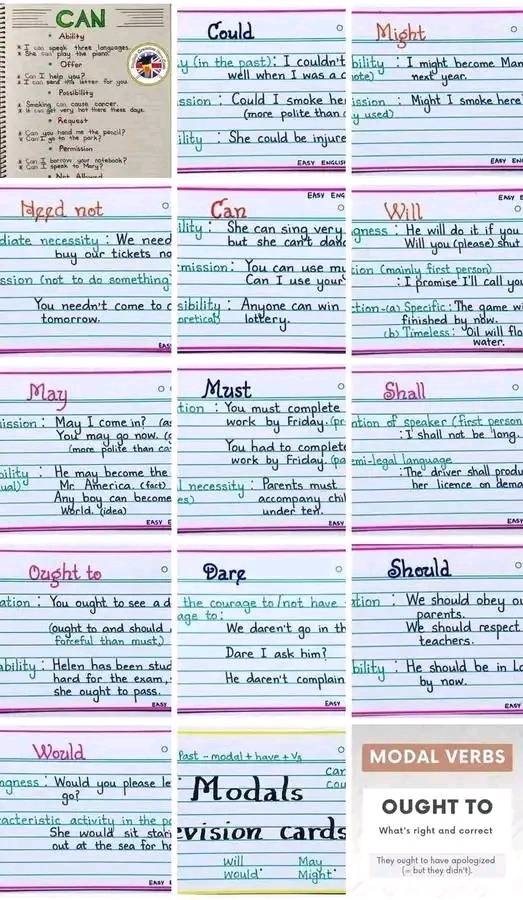 CAN
• Ability
* I can speak three languages.
* She can play the piano.
• Offer
* Can I help you?
* I can send this letter for you
• Possibility
* Smoking can cause cancer.
* It can get very hot there these days.
• Request
* Can you hand me the pencil?
* Can I go to the park?
• Permission
* Can I borrow your notebook?
* Can I speak to Mary?
• Not Allowed
Could
y (in the past): I couldn't
well when I was a c
ssion : Could I smoke he
(more polite than c
ility : She could be injure
EASY ENGLIS
Might
bility : I might become Man
ote) next year.
ission : Might I smoke here
y used)
EASY EN
Need not
diate necessity : We need
buy our tickets no
ssion (not to do something
You needn't come to c
tomorrow.
EAS
EASY ENG
Can
ility : She can sing very
but she can't dan
mission : You can use my
Can I use your
sibility : Anyone can win
oretical) lottery.
EASY E
Will
gness : He will do it if you
Will you (please) shut
tion (mainly first person)
: I promise I'll call you
ction-(a) Specific : The game wi
finished by now.
(b) Timeless : Oil will flo
water.
May
ission : May I come in? (as
You may go now. (g
(more polite than ca
bility : He may become the
ual) Mr. America. (fact)
Any boy can become
World. (idea)
EASY E
Must
tion : You must complete
work by Friday. (pr
You had to complete
work by Friday. (pa
l necessity : Parents must
es) accompany chil
under ten.
EASY
Shall
ntion of speaker (first person
: I shall not be long.
emi-legal language
: The driver shall produ
her licence on dema
EASY
Ought to
ation : You ought to see a d
(ought to and should
forceful than must.)
ability : Helen has been stud
hard for the exam,
she ought to pass.
EASY
Dare
the courage to/not have
age to :
We daren't go in th
Dare I ask him?
He daren't complain
EASY
Should
ation : We should obey ou
parents.
We should respect
teachers.
bility : He should be in Lo
by now.
EASY
Would
ngness : Would you please le
go?
acteristic activity in the pa
She would sit
out at the sea for ho
EASY E
Past - modal + have + V₃
Can
Cou
Modals
evision cards
Will May
Would Might
MODAL VERBS
OUGHT TO
What's right and correct
They ought to have apologized
(= but they didn't).